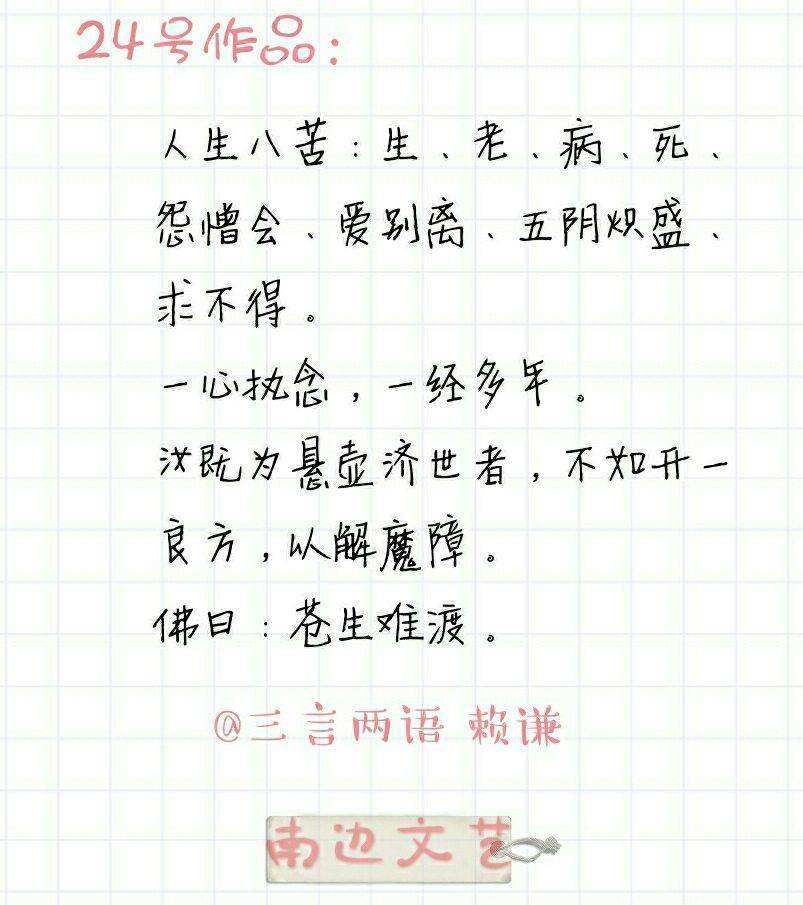 24号作品:
人生八苦:生、老、病、死、
怨憎会、爱别离、五阴炽盛、
求不得。
一心执念,一经多年。
汝既为悬壶济世者,不如开一
良方,以解魔障。
佛曰:苍生难渡。
@三言两语 赖谦
南边文艺